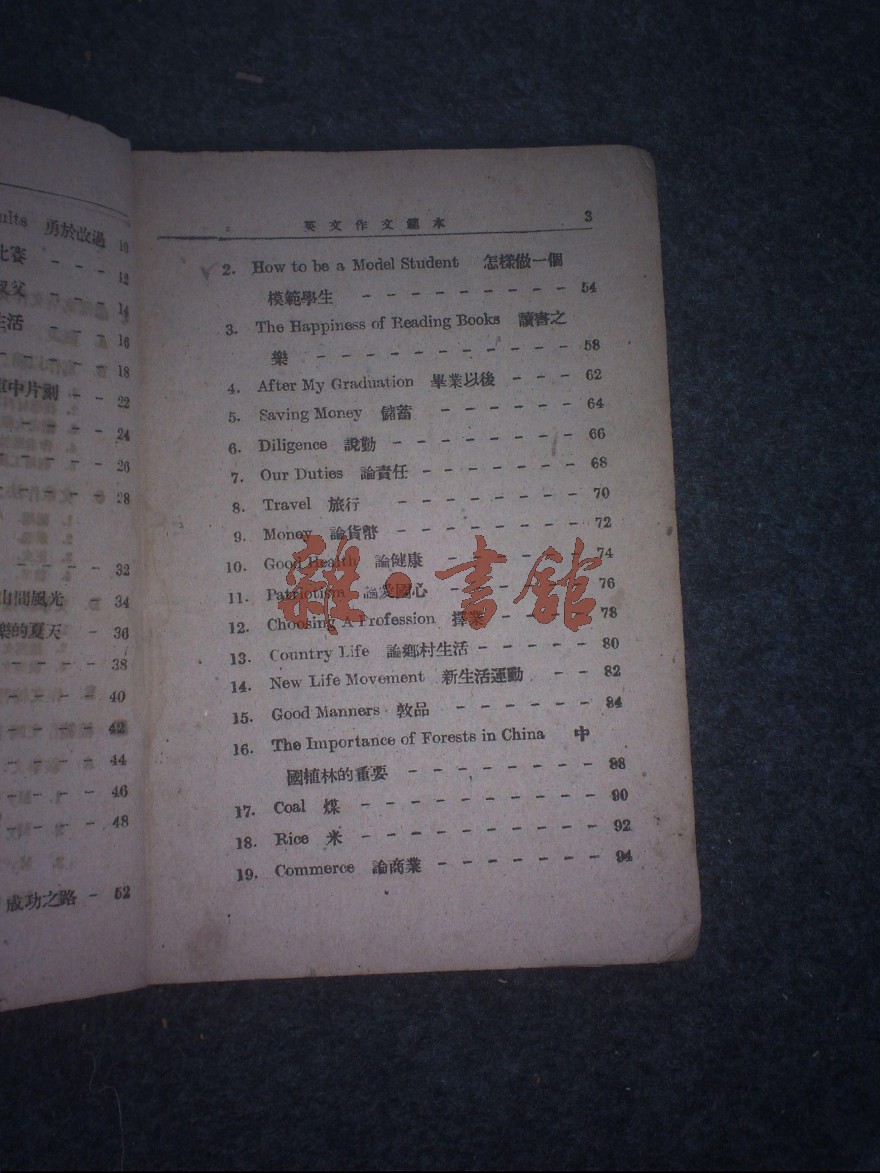 ults 勇於改過 10
比賽 - - - 12
叔父 - - - - 14
生活 - - - - 16
- - - - - 18
車中片劃 - - 22
- - - - 24
- - - - - 26
- - - - - 28
- - - - - 32
山間風光 - 34
樂的夏天 - 36
- - - - - 38
- - - - - 40
- - - - - 42
- - - - - 44
- - - - - 46
- - - - - 48
成功之路 - 52
英文作文範本 3
2. How to be a Model Student 怎樣做一個
模範學生 - - - - - - - - - - 54
3. The Happiness of Reading Books 讀書之
樂 - - - - - - - - - - - - 58
4. After My Graduation 畢業以後 - - - 62
5. Saving Money 儲蓄 - - - - - - - 64
6. Diligence 說勤 - - - - - - - - 66
7. Our Duties 論責任 - - - - - - - 68
8. Travel 旅行 - - - - - - - - 70
9. Money 論貨幣 - - - - - - - - 72
10. Good Health 論健康 - - - - - - 74
11. Patriotism 論愛國心 - - - - - - 76
12. Choosing A Profession 擇業 - - - - 78
13. Country Life 論鄉村生活 - - - - - 80
14. New Life Movement 新生活運動 - - 82
15. Good Manners 敦品 - - - - - - 84
16. The Importance of Forests in China 中
國植林的重要 - - - - - - - - 88
17. Coal 煤 - - - - - - - - - - 90
18. Rice 米 - - - - - - - - - - 92
19. Commerce 論商業 - - - - - - - 94
雜·書館